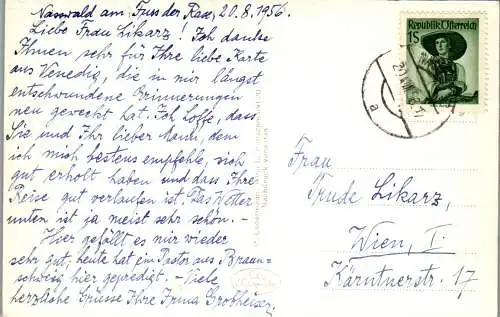 Nasswald am Fuss der Rax, 20.8.1956.
Liebe Frau Likarz! Ich danke
Ihnen sehr für Ihre liebe Karte
aus Venedig, die in mir längst
entschwundene Erinnerungen
neu geweckt hat. Ich hoffe, dass
Sie und Ihr lieber Mann, dem
ich mich bestens empfehle, sich
gut erholt haben und dass Ihre
Reise gut verlaufen ist. Das Wetter
unten ist ja meist sehr schön. -
Hier gefällt es mir wieder
sehr gut, heute hat ein Pastor aus Braun-
schweig hier gepredigt. - Viele
herzliche Grüsse Ihre Irma Grobheiser.
Republik Österreich
1S
Frau
Trude Likarz,
Wien, I.
Kärntnerstr. 17